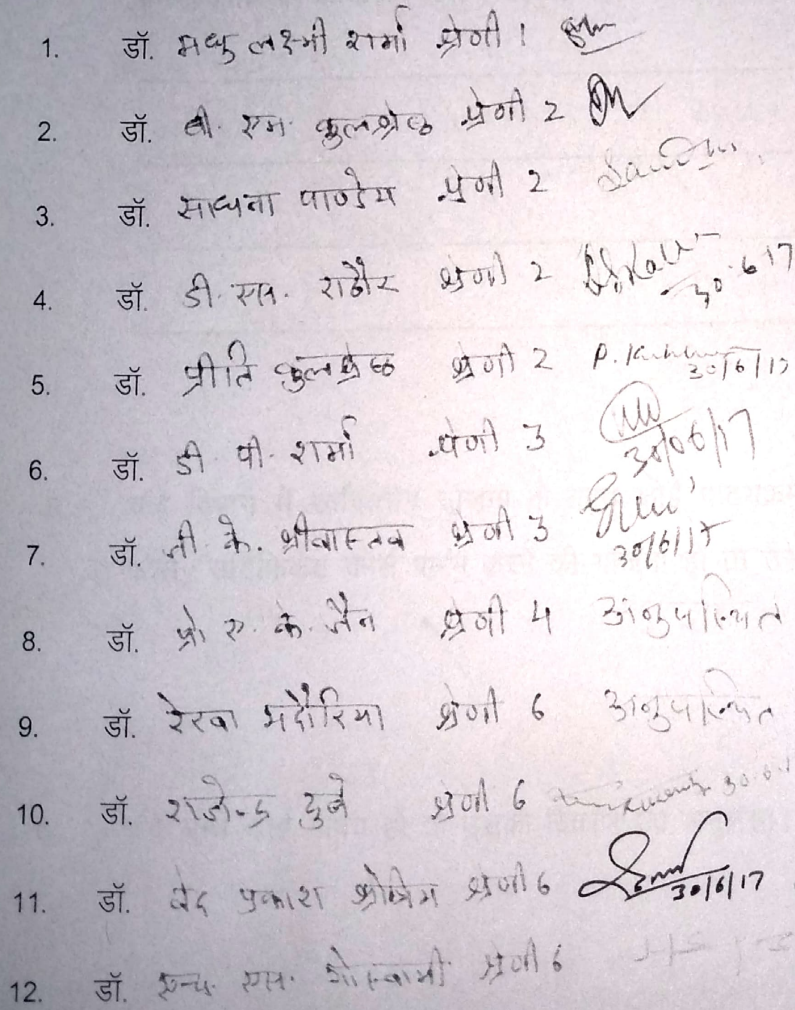 1. डॉ. मधु लक्ष्मी शर्मा श्रेणी 1
2. डॉ. बी. एम. कुलश्रेष्ठ श्रेणी 2
3. डॉ. साधना पाण्डेय श्रेणी 2
4. डॉ. डी. एस. राठौर श्रेणी 2 30.6.17
5. डॉ. प्रीति कुलश्रेष्ठ श्रेणी 2 30/6/17
6. डॉ. डी. पी. शर्मा श्रेणी 3 30/06/17
7. डॉ. जी. के. श्रीवास्तव श्रेणी 3 30/6/17
8. डॉ. प्रो. ए. के. जैन श्रेणी 4 अनुपस्थित
9. डॉ. रेखा भदौरिया श्रेणी 6 अनुपस्थित
10. डॉ. राजेन्द्र दुबे श्रेणी 6
11. डॉ. वेद प्रकाश श्रोत्रिय श्रेणी 6 30/6/17
12. डॉ. एन्च. एस. गोस्वामी श्रेणी 6